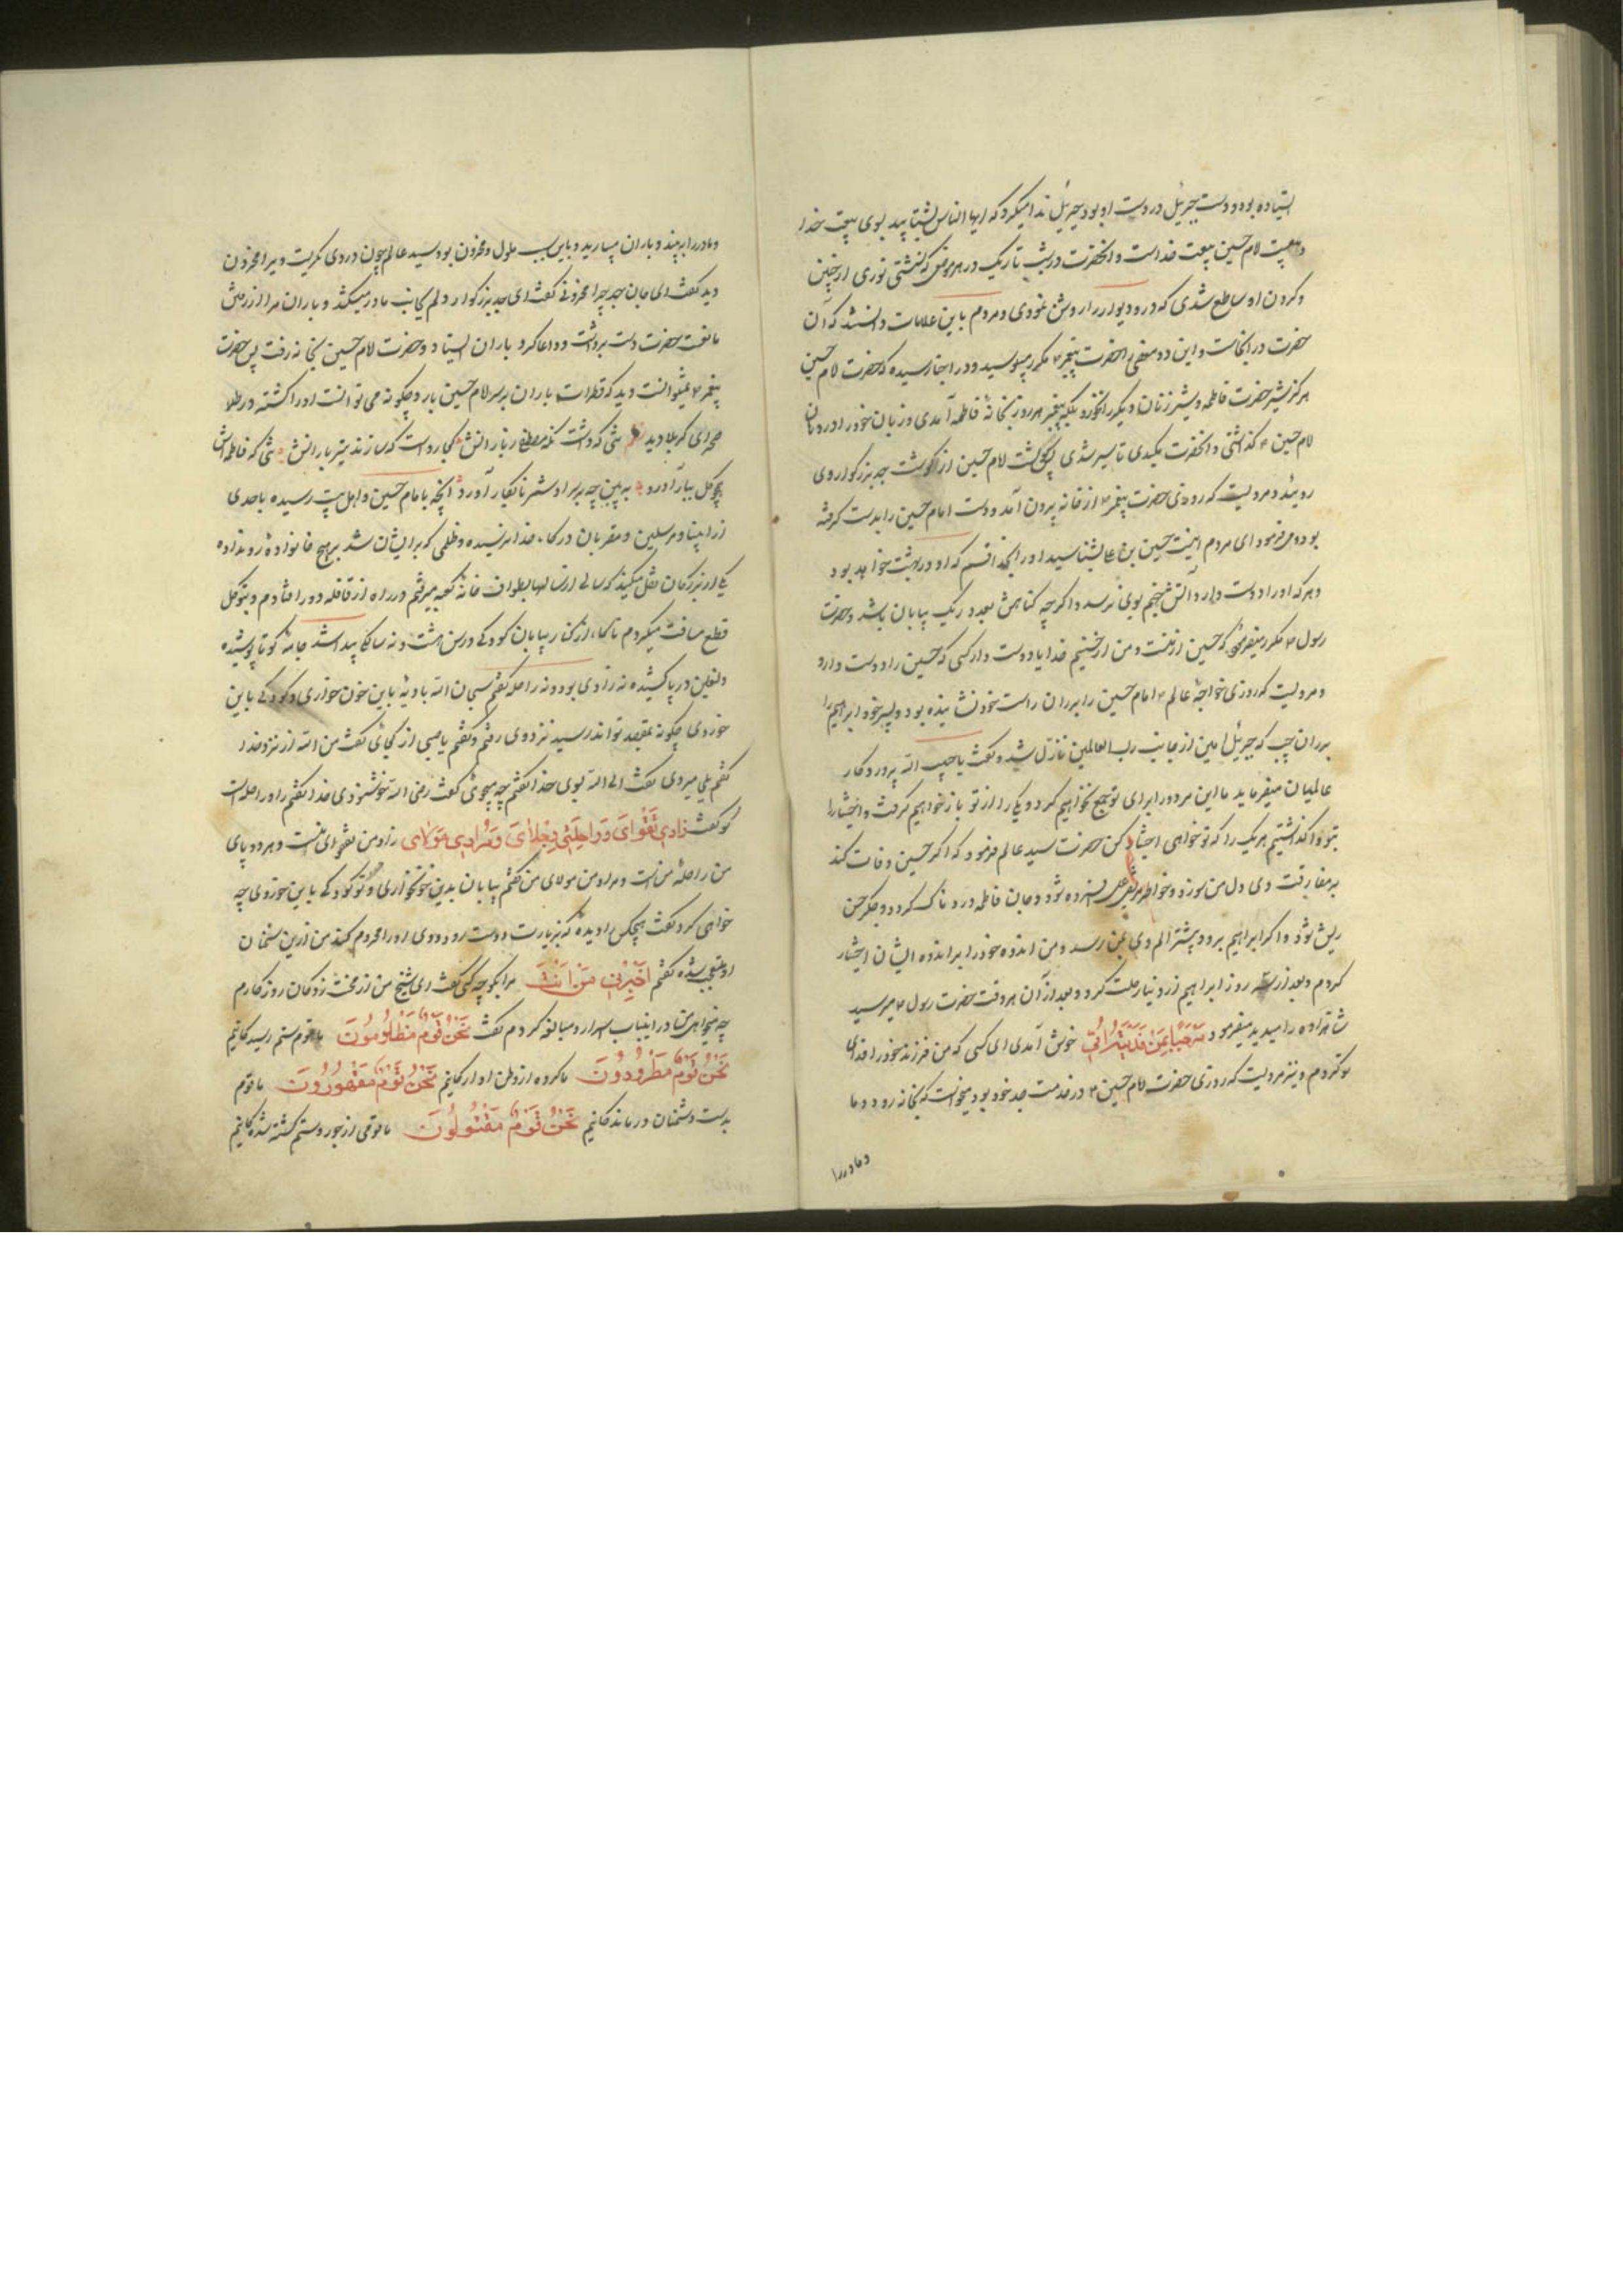 ایستاده بود و دست جبرئیل در دست او بود و جبرئیل ندا میکرد که ایها الناس بشتابید بسوی بیعت خدا
و بیعت امام حسین بیعت خداست و آنحضرت در شب تاریک در هر موضعی که نشستی نوری از جبین
و گردن او ساطع شدی که در و دیوار را روشن نمودی و مردم باین علامات دانستند که آن
حضرت در انجاست و این دو موضع را حضرت پیغمبر مکرر میبوسید و در اخبار رسیده که حضرت امام حسین
هرگز شیر حضرت فاطمه و شیر زنان دیگر را نخورد بلکه پیغمبر هر روز بخانهٔ فاطمه آمدی و زبان خود را در دهان
امام حسین گذاشتی و آنحضرت بمکیدی تا سیر شدی پس گوشت امام حسین از گوشت جد بزرگوار وی
روئید و مرویست که روزی حضرت پیغمبر از خانه بیرون آمد و دست امام حسین را بدست گرفته
بود و میفرمود ای مردم اینست حسین بن علی بشناسید او را بخدا قسم که او در بهشت خواهد بود
و هر که او را دوست دارد آتش جهنم بوی نرسد و اگر چه گناهش بعدد ریگ بیابان باشد و حضرت
رسول مکرر میفرمود که حسین از منست و من از حسینم خدایا دوست دار کسی که حسین را دوست دارد
و مرویست که روزی خواجهٔ عالم امام حسین را بر ران راست خود نشانیده بود و پسر خود ابراهیم را
بر ران چپ که جبرئیل امین از جانب رب العالمین نازل شد و گفت یا حبیب الله پروردگار
عالمیان میفرماید ما این هر دو را برای تو جمع نخواهیم کرد و یکی را از تو باز خواهیم گرفت و اختیار را
بتو واگذاشتیم هر یک را که تو خواهی اختیار کن حضرت سید عالم فرمود که اگر حسین وفات کند
بمفارقت وی دل من سوزد و خواطر علی افسرده شود و جان فاطمه دردناک گردد و جگر حسن
ریش شود و اگر ابراهیم برود بیشتر الم وی بمن رسد و من اندوه خود را بر اندوه ایشان اختیار
کردم و بعد از سه روز ابراهیم از دنیا رحلت کرد و بعد از آن هر وقت حضرت رسول میرسید
شاهزاده را میدید میفرمود مَرْحَبًا بِمَنْ فَدَیْتُهُ بِابْنی خوش آمدی ای کسی که من فرزند خود را فدای
تو کردم و نیز مرویست که روزی حضرت امام حسین در خدمت جد خود بود میخواست که بخانه رود و ما
و مادر را
و مادر را به بیند و باران میبارید و باین سبب ملول و محزون بود سید عالم چون در وی نگریست ویرا محزون
دید گفت ای جان جد چرا محزونی گفت ای جد بزرگوار دلم بجانب مادر میکشد و باران مرا از رفتن
مانعست حضرت دست برداشت و دعا کرد باران ایستاد و حضرت امام حسین بخانه رفت پس حضرت
پیغمبر نمیتوانست دید که قطرات باران بر سر امام حسین بارد چگونه می توانست او را کشته در
صحرای کربلا دید تنی که داشت نگه مصطفی ز بارانش کجا رواست که سازند تیر بارانش تنی که فاطمه اش
همچو گل ببار آورد به بین چه بر سر او شمر نابکار آورد آنچه بامام حسین و اهل بیت رسیده باحدی
از انبیا و مرسلین و مقربان درگاه خدا نرسیده و ظلمی که بر ایشان شد بر هیچ خانواده رو نداده
یکی از بزرگان نقل میکند که سالی از سالها بطواف خانهٔ کعبه میرفتم در راه از قافله دور افتادم و بتوکل
قطع مسافت میکردم ناگاه از کنار بیابان کودکی در سن هشت و نه سالگی پیدا شد جامهٔ کوتاه پوشیده
و نعلین در پا کشیده نه زادی بود و نه راحله گفتم سبحان الله بادیهٔ باین خون خواری و کودکی باین
خوردی چگونه بمقصد تواند رسید نزد وی رفتم و گفتم یا صبی از کجائی گفت من الله از نزد خدا
گفتم بکجا میروی گفت الی الله بسوی خدا گفتم چه میجوئی گفت رضی الله خوشنودی خدا گفتم زاد و راحله ات
کو گفت زادی تَقْوایَ وَراحِلَتی رِجْلایَ وَمُرادی مَوْلایَ زاد من تقوای منست و هر دو پای
من راحلهٔ منست و مراد من مولای من گفتم بیابان بدین خونخواری و تو کودکی باین خوردی چه
خواهی کرد گفت هیچکس را دیدهٔ که بزیارت دوست رود و وی او را محروم کند من ازین سخنان
او متعجب شده گفتم اَخْبِرْنی مَنْ اَنْتَ مرا بگو چه کسی گفت ای شیخ من از محنت زدگان روزگارم
چه میخواهی تا در اینباب اسرار و مبالغه کردم گفت نَحْنُ قَوْمٌ مَظْلُومُونَ ما قوم ستم رسیدگانیم
نَحْنُ قَوْمٌ مَطْرُودُونَ ما گروه از وطن آوارگانیم نَحْنُ قَوْمٌ مَقْهُورُونَ ما قوم
بدست دشمنان درماندگانیم نَحْنُ قَوْمٌ مَقْتُولُونَ ما قومی از جور و ستم کشته شدگانیم